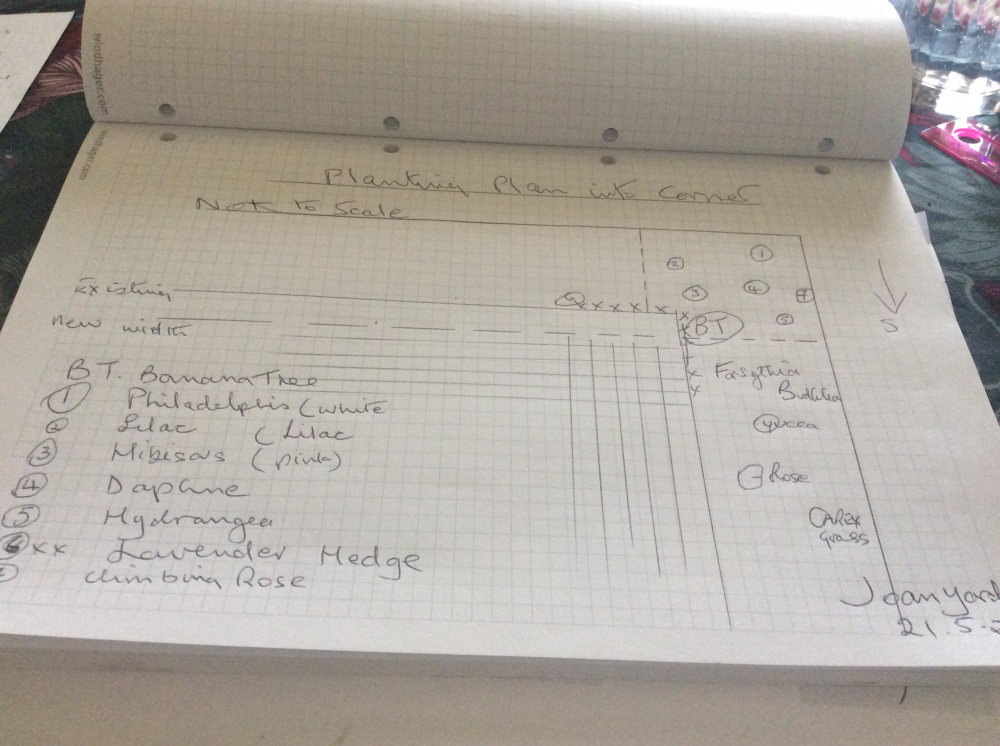 windhager.com
windhager.com
Planting Plan into Corner
Not to Scale
1
2
3
4
7
5
Existing
x x x x
BT
S
new width
BT. Banana Tree
1 Philadelphis (white
2 Lilac (Lilac
3 Hibiscus (pink)
4 Daphne
5 Hydrangea
6 xx Lavender Hedge
climbing Rose
Forsythia
Yucca
Rose
CAREX
grass
21.5.2